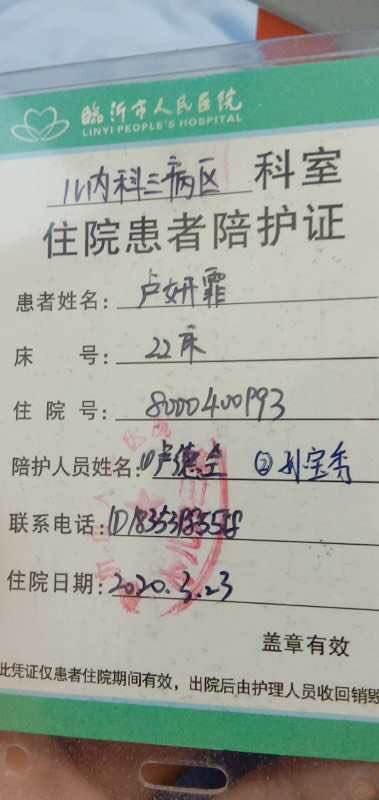 临沂市人民医院
LINYI PEOPLE'S HOSPITAL
儿内科三病区 科室
住院患者陪护证
患者姓名：卢妍霏
床 号：22床
住 院 号：8000400993
陪护人员姓名：①卢德全 ②刘宝秀
联系电话：①18353185558
住院日期：2020.3.23
盖章有效
此凭证仅患者住院期间有效，出院后由护理人员收回销毁